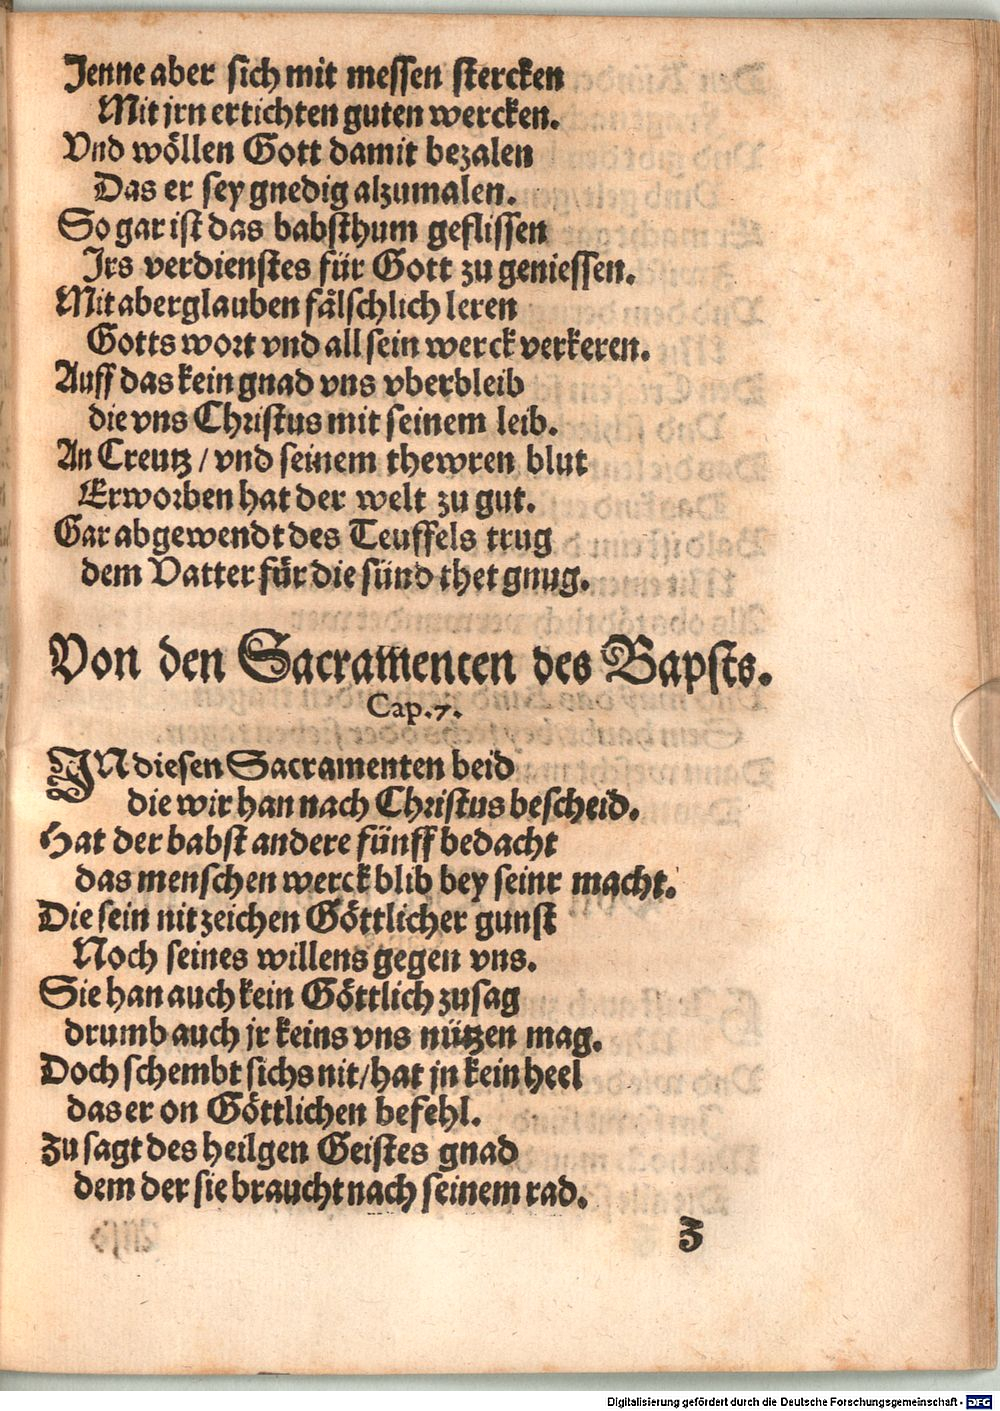 Jenne aber sich mit messen stercken
Mit jrn ertichten guten wercken.
Vnd wöllen Gott damit bezalen
Das er sey gnedig alzumalen.
So gar ist das babsthum geflissen
Irs verdienstes für Gott zu geniessen.
Mit aberglauben fälschlich leren
Gotts wort vnd all sein werck verkeren.
Auff das kein gnad vns vberbleib
die vns Christus mit seinem leib.
An Creutz / vnd seinem thewren blut
Erworben hat der welt zu gut.
Gar abgewendt des Teuffels trug
dem Vatter für die sünd thet gnug.
Von den Sacramenten des Bapsts.
Cap.7.
IN diesen Sacramenten beid
die wir han nach Christus bescheid.
Hat der babst andere fünff bedacht
das menschen werck blib bey seinr macht.
Die sein nit zeichen Göttlicher gunst
Noch seines willens gegen vns.
Sie han auch kein Göttlich zusag
drumb auch jr keins vns nützen mag.
Doch schembt sichs nit/hat jn kein heel
das er on Göttlichen befehl.
Zu sagt des heilgen Geistes gnad
dem der sie braucht nach seinem rad.
Z
Digitalisierung gefördert durch die Deutsche Forschungsgemeinschaft - DFG